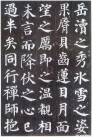 岳瀆之秀冰雪之姿
果脣貝齒蓮目月面
望之厲即之溫覩相
未言而降伏之心已
過半矣同行禪師抱